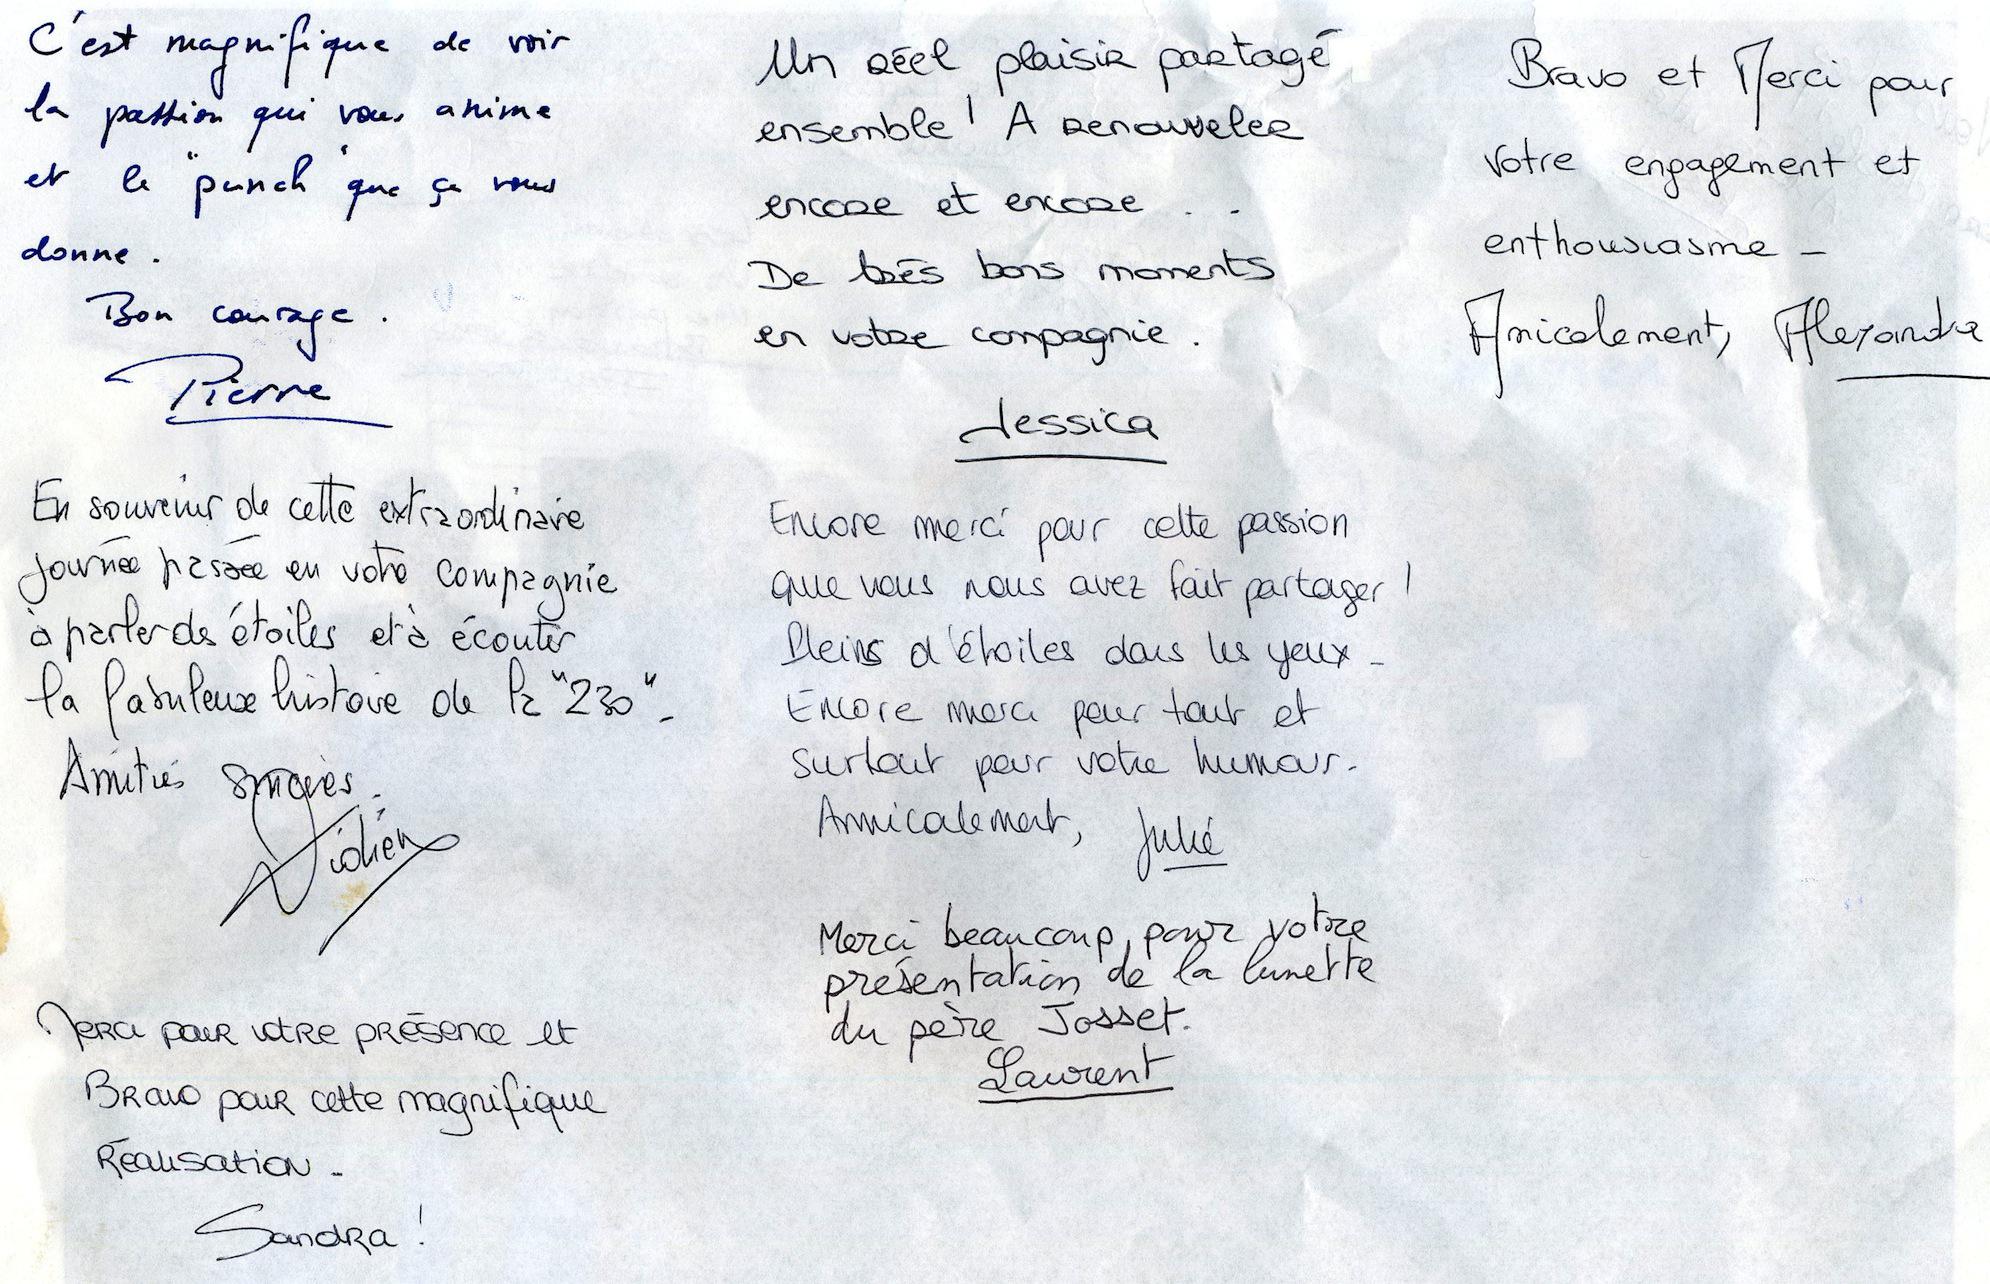 C'est magnifique de voir
la passion qui vous anime
et le "punch" que ça vous
donne.
Bon courage.
Pierre
En souvenir de cette extraordinaire
journée passée en votre compagnie
à parler des étoiles et à écouter
la fabuleuse histoire de la "230".
Amitiés sincères.
Didier
Merci pour votre présence et
Bravo pour cette magnifique
Réalisation -
Sandra !
Un réel plaisir partagé
ensemble ! A renouveler
encore et encore ...
De très bons moments
en votre compagnie.
Jessica
Encore merci pour cette passion
que vous nous avez fait partager !
Pleins d'étoiles dans les yeux -
Encore merci pour tout et
surtout pour votre humour.
Amicalement, Julie
Merci beaucoup pour votre
présentation de la lunette
du père Josset.
Laurent
Bravo et Merci pour
votre engagement et
enthousiasme -
Amicalement, Alexandra